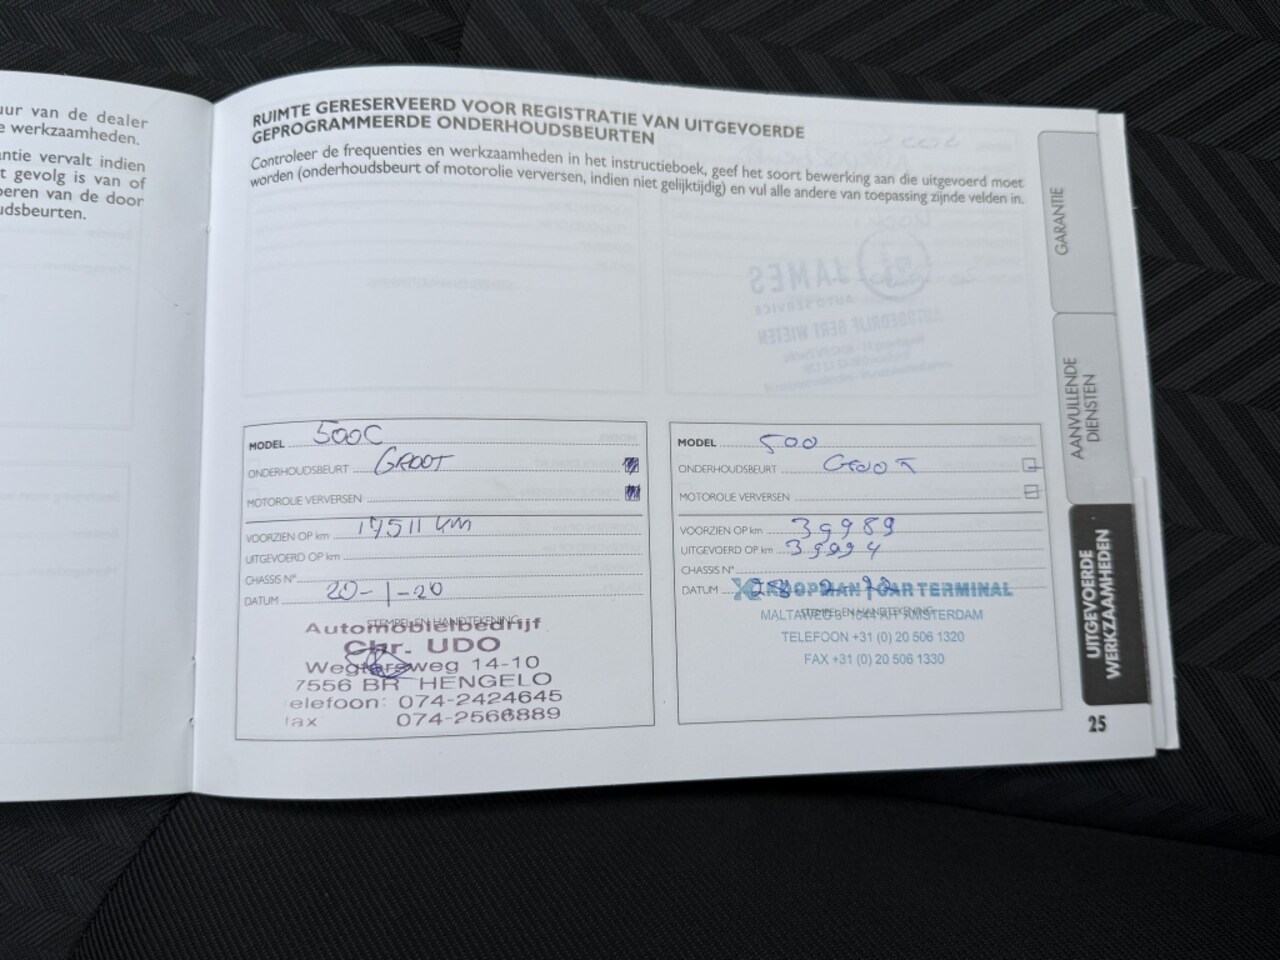 uur van de dealer
e werkzaamheden.
ntie vervalt indien
t gevolg is van of
eren van de door
udsbeurten.
RUIMTE GERESERVEERD VOOR REGISTRATIE VAN UITGEVOERDE
GEPROGRAMMEERDE ONDERHOUDSBEURTEN
Controleer de frequenties en werkzaamheden in het instructieboek, geef het soort bewerking aan die uitgevoerd moet
worden (onderhoudsbeurt of motorolie verversen, indien niet gelijktijdig) en vul alle andere van toepassing zijnde velden in.
JAMES
AUTOSERVICE
AUTOBEDRIJF GERT WIETEN
MODEL 500C
ONDERHOUDSBEURT GROOT
MOTOROLIE VERVERSEN
VOORZIEN OP km 17511 km
UITGEVOERD OP km
CHASSIS N°
DATUM 20-1-20
STEMPEL EN HANDTEKENING
Automobielbedrijf
Chr. UDO
Wegtersweg 14-10
7556 BR HENGELO
elefoon: 074-2424645
fax 074-2566889
MODEL 500
ONDERHOUDSBEURT GROOT
MOTOROLIE VERVERSEN
VOORZIEN OP km 39989
UITGEVOERD OP km 39994
CHASSIS N°
DATUM
KOOPMAN CAR TERMINAL
STEMPEL EN HANDTEKENING
MALTAWEG AMSTERDAM
TELEFOON +31 (0) 20 506 1320
FAX +31 (0) 20 506 1330
GARANTIE
AANVULLENDE
DIENSTEN
UITGEVOERDE
WERKZAAMHEDEN
25